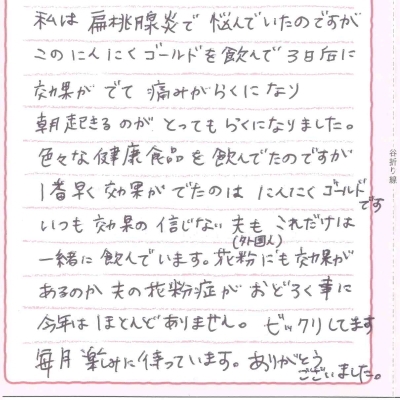 私は 扁桃腺炎で 悩んでいたのですが
このにんにくゴールドを飲んで 3日后に
効果が でて 痛みがらくに なり
朝起きる のが とっても らくになりました。
色々な健康食品を 飲んでたのですが
1番早く 効果が でたのは にんにくゴールドです
いつも 効果の 信じない 夫も これだけは
(外国人)
一緒に 飲んでいます。花粉にも効果が
あるのか 夫の花粉症が おどろく事に
今年はほとんどありません。 ビックリしてます
毎月 楽しみに待っています。ありがとう
ございました。
谷折り線